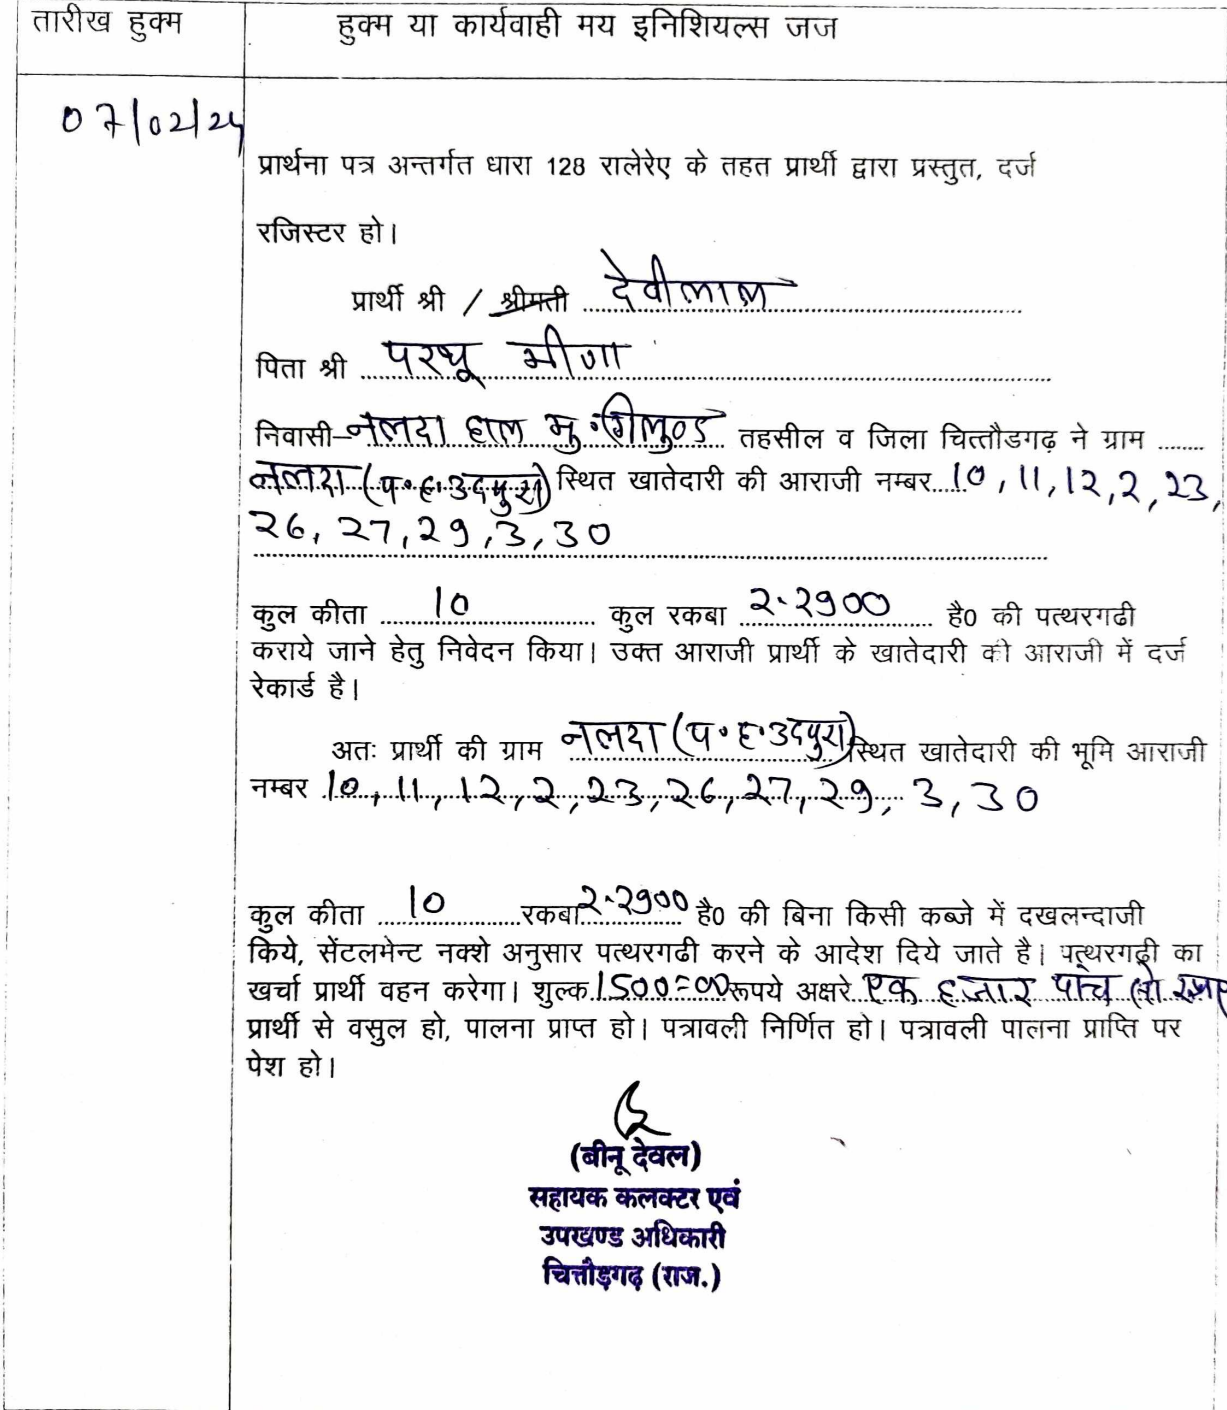 तारीख हुक्म
हुक्म या कार्यवाही मय इनिशियल्स जज
07/02/24
प्रार्थना पत्र अन्तर्गत धारा 128 रालेरेए के तहत प्रार्थी द्वारा प्रस्तुत, दर्ज
रजिस्टर हो।
प्रार्थी श्री / श्रीमती देवीलाल
पिता श्री परथू मीणा
निवासी- हाल मु. गिलुण्ड तहसील व जिला चित्तौडगढ़ ने ग्राम
(प.ह.उदपुरा) स्थित खातेदारी की आराजी नम्बर 10, 11, 12, 2, 23,
26, 27, 29, 3, 30
कुल कीता 10 कुल रकबा 2.2900 है0 की पत्थरगढी
कराये जाने हेतु निवेदन किया। उक्त आराजी प्रार्थी के खातेदारी की आराजी में दर्ज
रेकार्ड है।
अतः प्रार्थी की ग्राम (प.ह.उदपुरा) स्थित खातेदारी की भूमि आराजी
नम्बर 10, 11, 12, 2, 23, 26, 27, 29, 3, 30
कुल कीता 10 रकबा 2.2900 है0 की बिना किसी कब्जे में दखलन्दाजी
किये, सेंटलमेन्ट नक्शे अनुसार पत्थरगढी करने के आदेश दिये जाते है। पत्थरगढ़ी का
खर्चा प्रार्थी वहन करेगा। शुल्क 1500=00 रूपये अक्षरे एक हजार पांच सो
प्रार्थी से वसुल हो, पालना प्राप्त हो। पत्रावली निर्णित हो। पत्रावली पालना प्राप्ति पर
पेश हो।
(बीनू देवल)
सहायक कलक्टर एवं
उपखण्ड अधिकारी
चित्तौड़गढ़ (राज.)